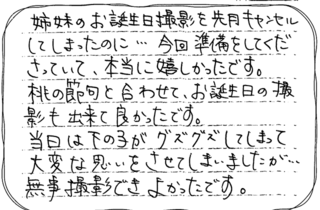 姉妹のお誕生日撮影を先月キャンセル
してしまったのに…今回準備をしてくだ
さっていて、本当に嬉しかったです。
桃の節句と合わせて、お誕生日の撮
影も出来て良かったです。
当日は下の子がグズグズしてしまって
大変な思いをさせてしまいましたが…
無事撮影できよかったです。